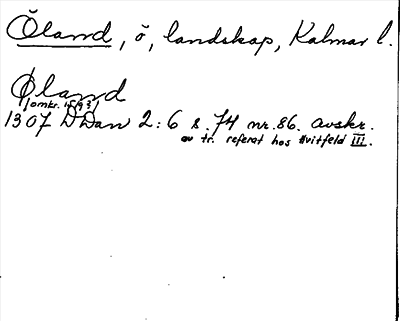 Öland, ö, landskap, Kalmar l.
Øland
(omkr. 1593)
1307 DDan 2:6 s. 74 nr. 86. avskr.
av tr. referat hos Hvitfeld III.